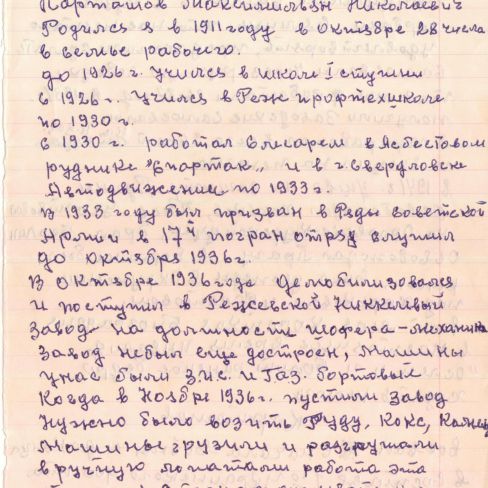 Карташов Максимильян Николаевич
Родился я в 1911 году в Октябре 28 числа
в семье рабочего.
до 1926 г. учился в школе I ступини
с 1926 г. учился в Реж профтехшколе
по 1930 г.
с 1930 г. работал слисарем в Асбестовом
руднике "Спартак" и в г. свердловске
Автодвижение по 1933 г.
в 1933 году был призван в Ряды советской
Армии в 17й погран отряд служил
до Октября 1936 г.
в Октябре 1936 года демобилизовался
и поступил в Режевской Никкеливый
завод на должность шофера-механика
завод небыл еще достроен, машины
у нас были З.и.с. и Газ. бортовые
Когда в Ноябре 1936 г. пустили завод
нужно было возить Руду, Кокс,
машины грузили и разгружали
вручную лопатами работа эта